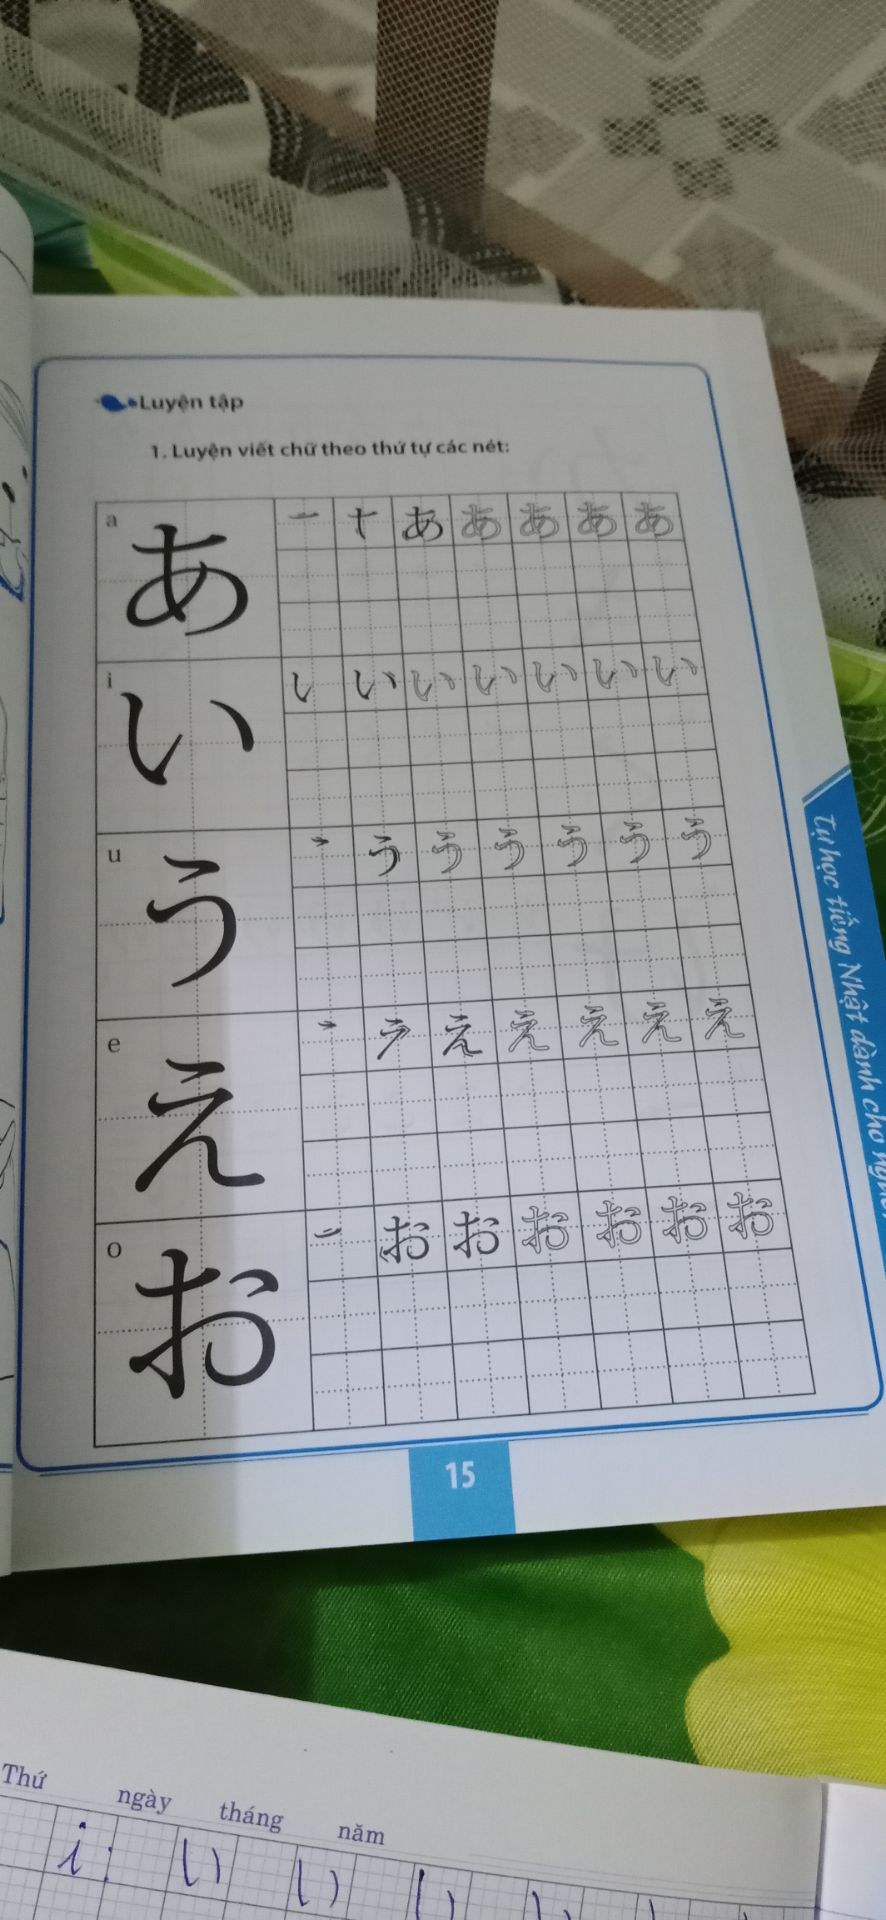 Luyện tập
1. Luyện viết chữ theo thứ tự các nét:
a あ 一 あ あ あ あ あ
i い い い い い い い
u う う う う う う う
e え え え え え え
o お お お お お お お
15
Tự học tiếng Nhật dành cho
Thứ ngày tháng năm
i: い い い